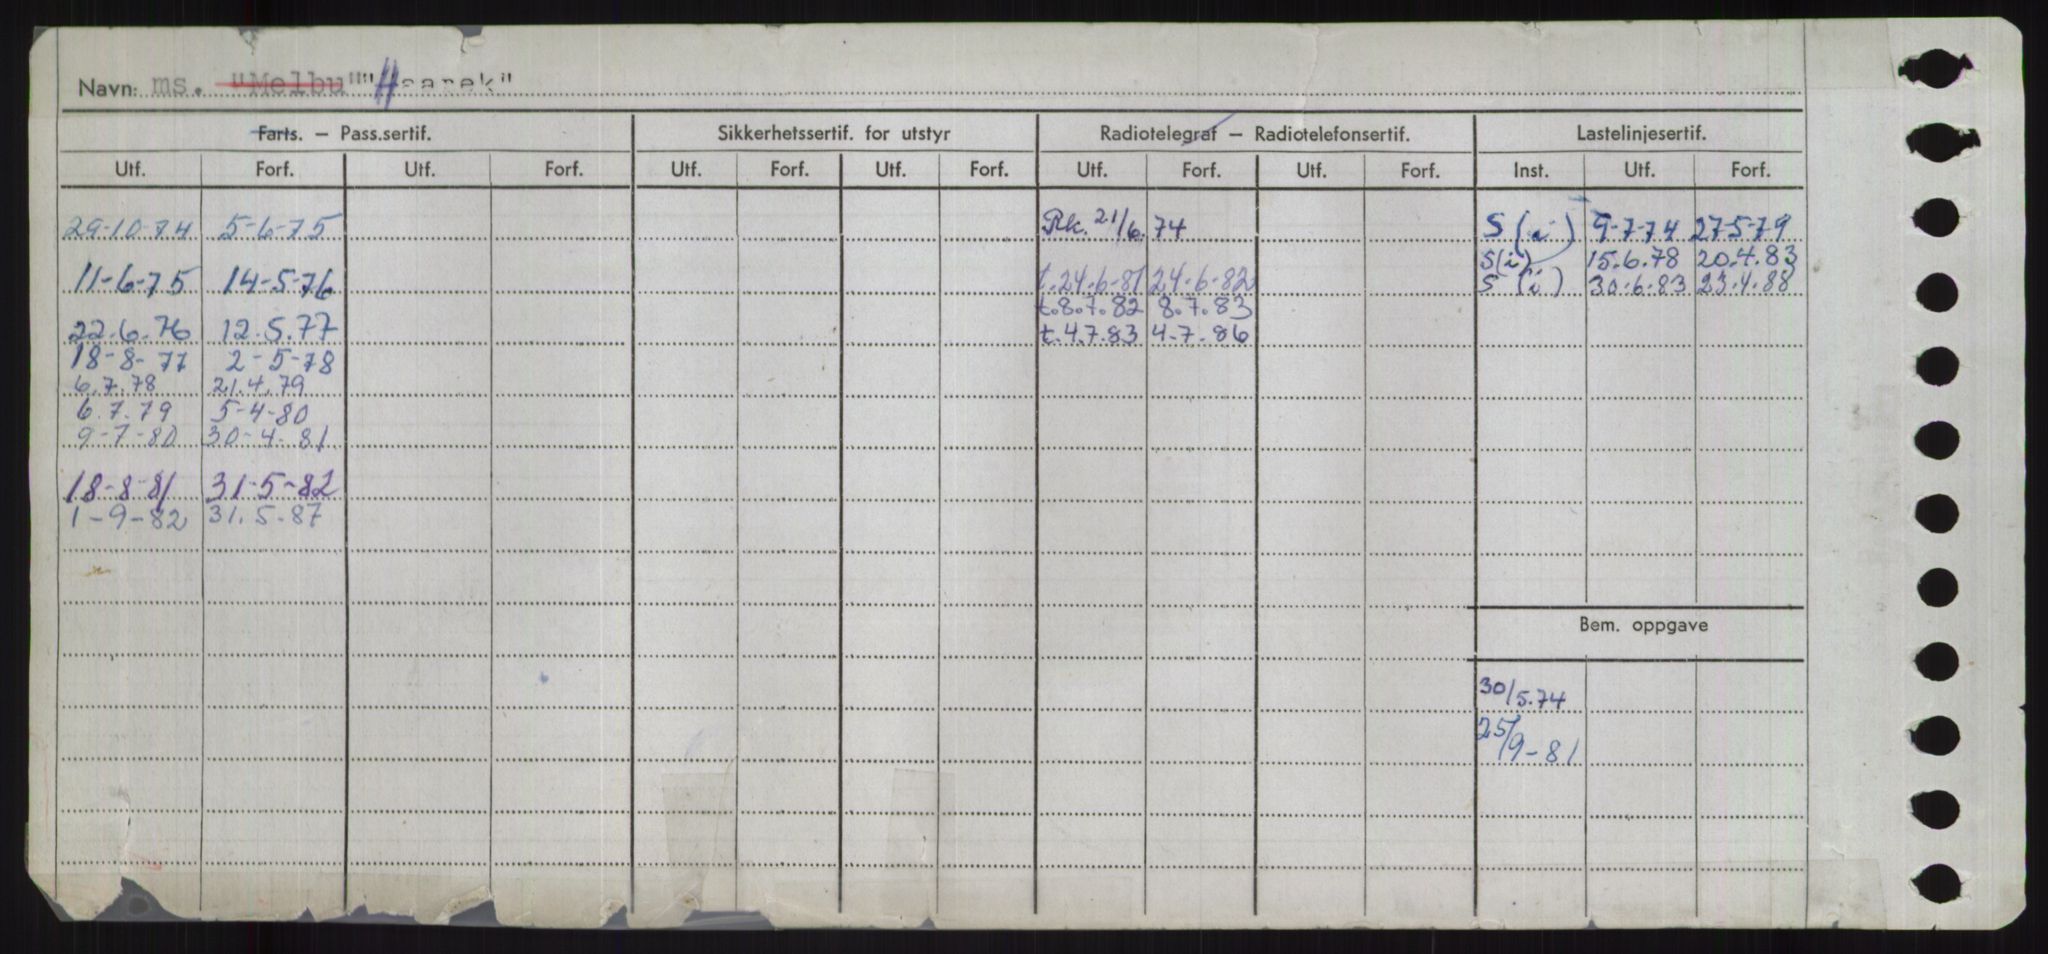 Navn: ms. "Melbu" "Haarek"
Farts. – Pass.sertif. Sikkerhetssertif. for utstyr Radiotelegraf – Radiotelefonsertif. Lastelinjesertif.
Utf. Forf. Utf. Forf. Utf. Forf. Utf. Forf. Utf. Forf. Utf. Forf. Inst. Utf. Forf.
29-10-74 5-6-75 Rk. 21/6.74 S (i) 9-7-74 27-5-79
S(i) 15.6.78 20.4.83
11-6-75 14-5-76 t.24-6-81 24-6-82 S (i) 30.6.83 23.4.88
t.8.7.82 8.7.83
22.6.76 12.5.77 t.4.7.83 4.7.86
18-8-77 2-5-78
6.7.78 21.4.79
6.7.79 5-4-80
9-7-80 30-4-81
18-8-81 31-5-82
1-9-82 31.5-87
Bem. oppgave
30/5.74
25/9-81